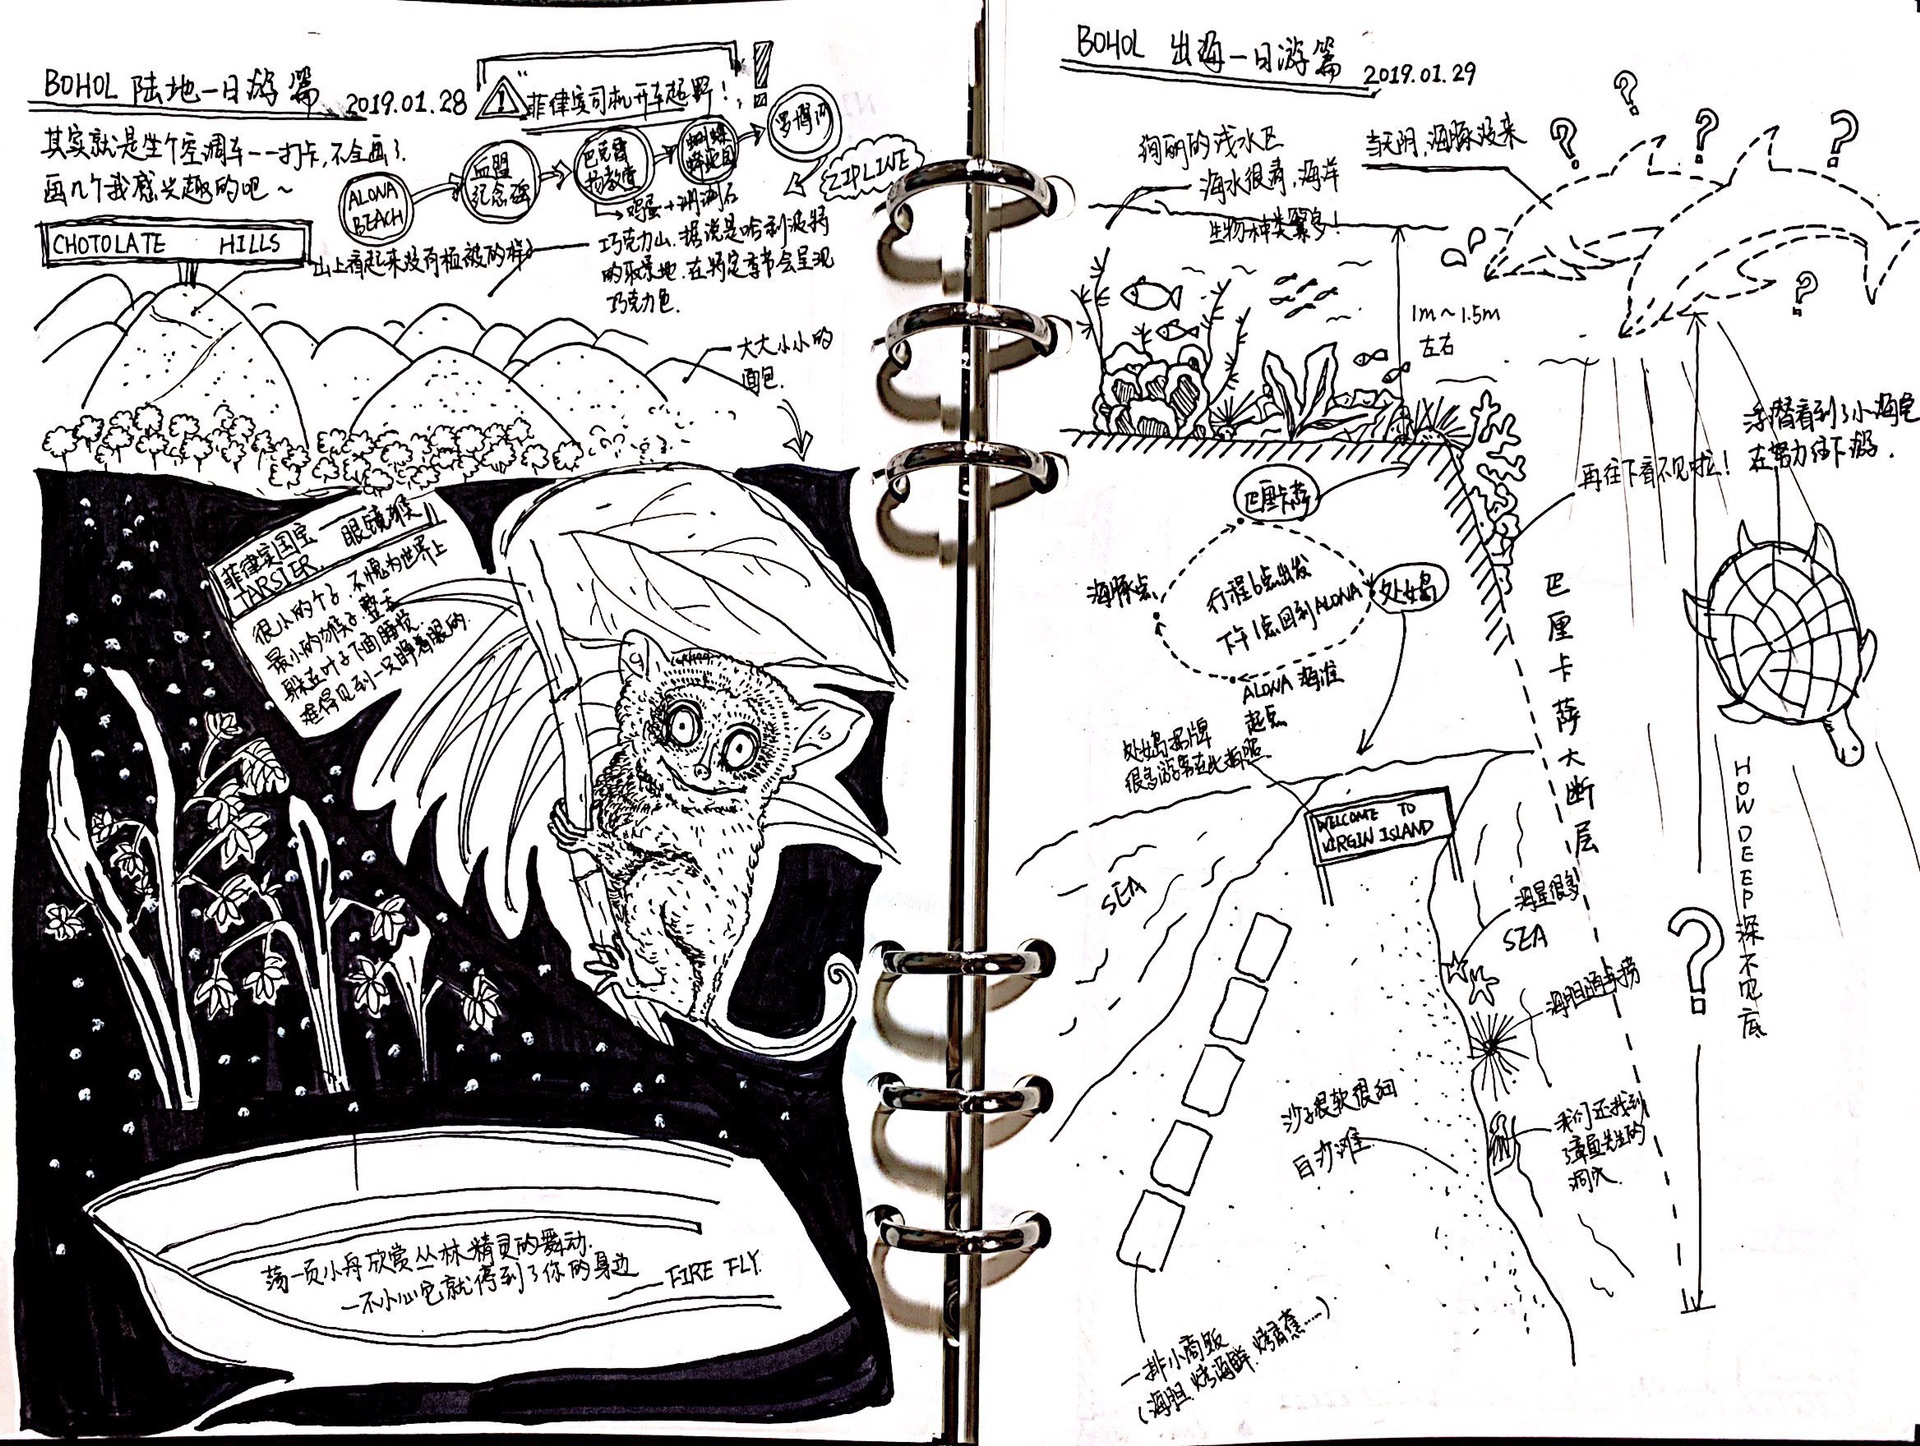 BOHOL 陆地一日游篇 2019.01.28
菲律宾司机开车超野!
其实就是坐个空调车一一打卡,不全画了.
画几个我感兴趣的吧~
ALONA
BEACH
血盟
纪念碑
巴克雷
扬教堂
蝴蝶
罗博河
ZIPLINE
鸡蛋+珊瑚石
CHOTOLATE HILLS
山上看起来没有植被的样子
巧克力山.据说是哈利波特
的取景地.在特定季节会呈现
巧克力色.
大大小小的
面包.
菲律宾国宝 眼镜猴
TARSIER.
很小的个子.不愧为世界上
最小的猴子.整天
躲在叶子下面睡觉.
难得见到一只睁着眼的.
荡一页小舟欣赏丛林精灵的舞动.
一不小心它就停到了你的身边
FIRE FLY.
BOHOL 出海一日游篇 2019.01.29
绚丽的浅水区
海水很清,海洋
生物种类繁多!
当天阴,海豚没来
? ? ? ? ?
1m~1.5m
左右
浮潜看到了小海龟
在努力往下游.
再往下看不见啦!
巴里卡萨
海豚点
行程6点出发
下午1点回到ALONA
处女岛
ALONA 海滩
起点
巴厘卡萨大断层
处女岛招牌
很多游客在此拍照.
WELCOME TO
VIRGIN ISLAND
SEA
海星很多
SEA
海胆随手捞
HOW DEEP深不见底
?
沙子很软很细
白沙滩
我们还找到
了章鱼先生的
洞穴
一排小商贩
(海胆.烤海鲜.烤香蕉……)